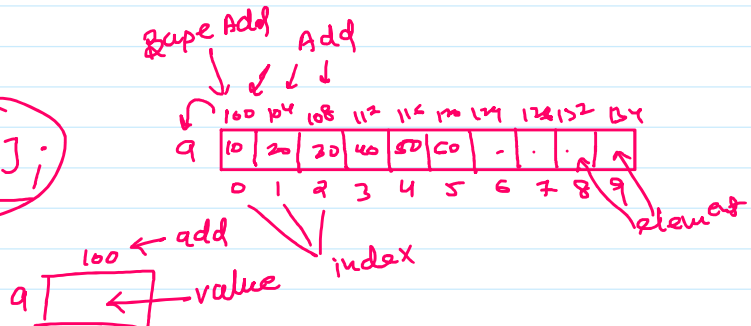 Base Add Add
100 104 108 112 116 120 124 128 132 134
] ;
a 10 20 30 40 50 60 . . . .
0 1 2 3 4 5 6 7 8 9
element
index
100 ← add
a ← value